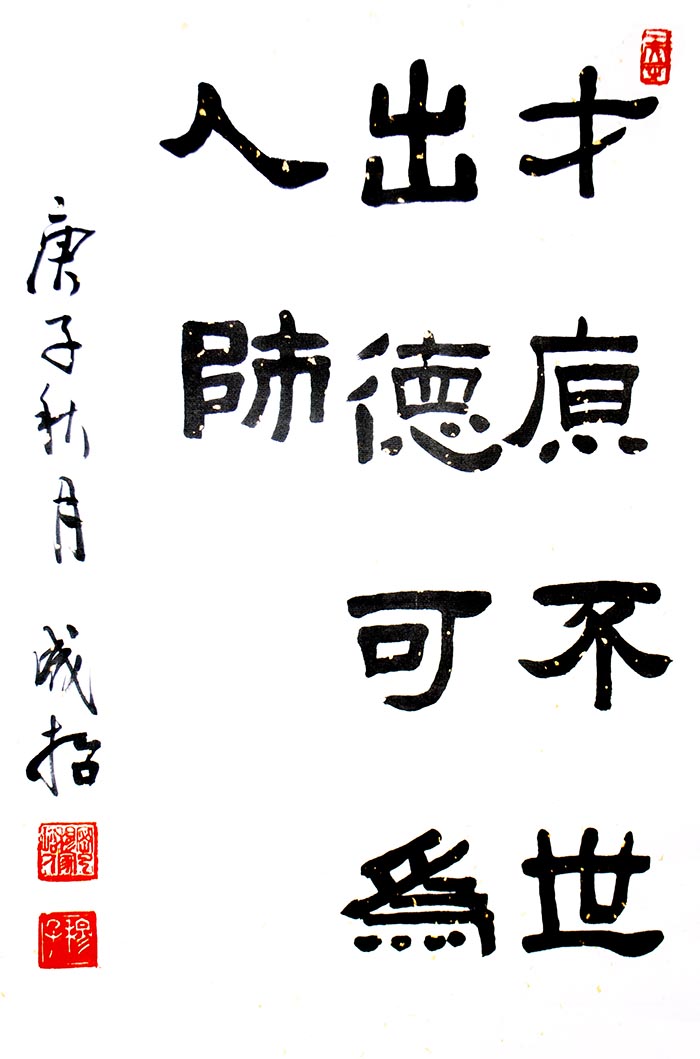 才原不世
出德可為
人師
庚子秋月